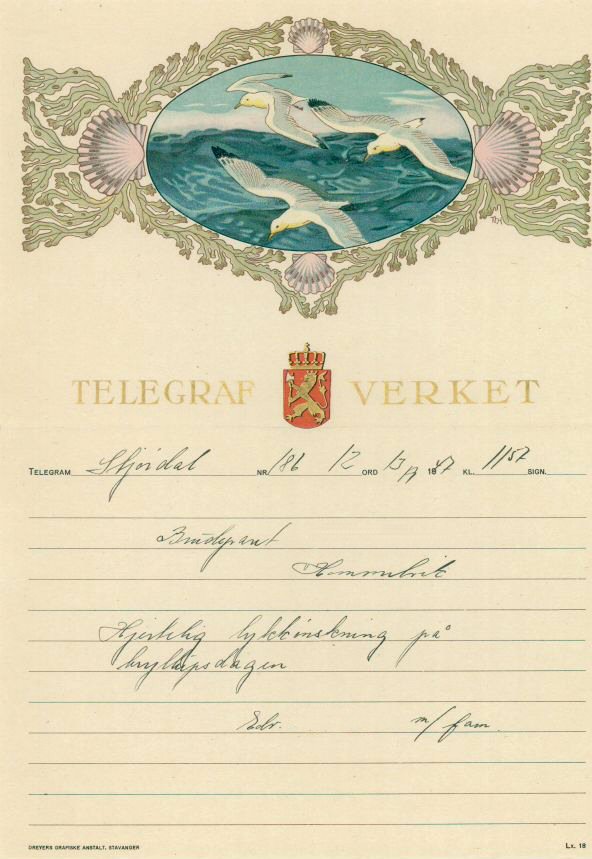 TELEGRAF VERKET
TELEGRAM Stjørdal NR. 186 12 ORD 13/9 1947 KL. 1157 SIGN.
Brudepant
Hommelvik
Hjertelig lykkønskning på
bryllupsdagen
Edv. m/fam.
DREYERS GRAFISKE ANSTALT, STAVANGER Lx. 18